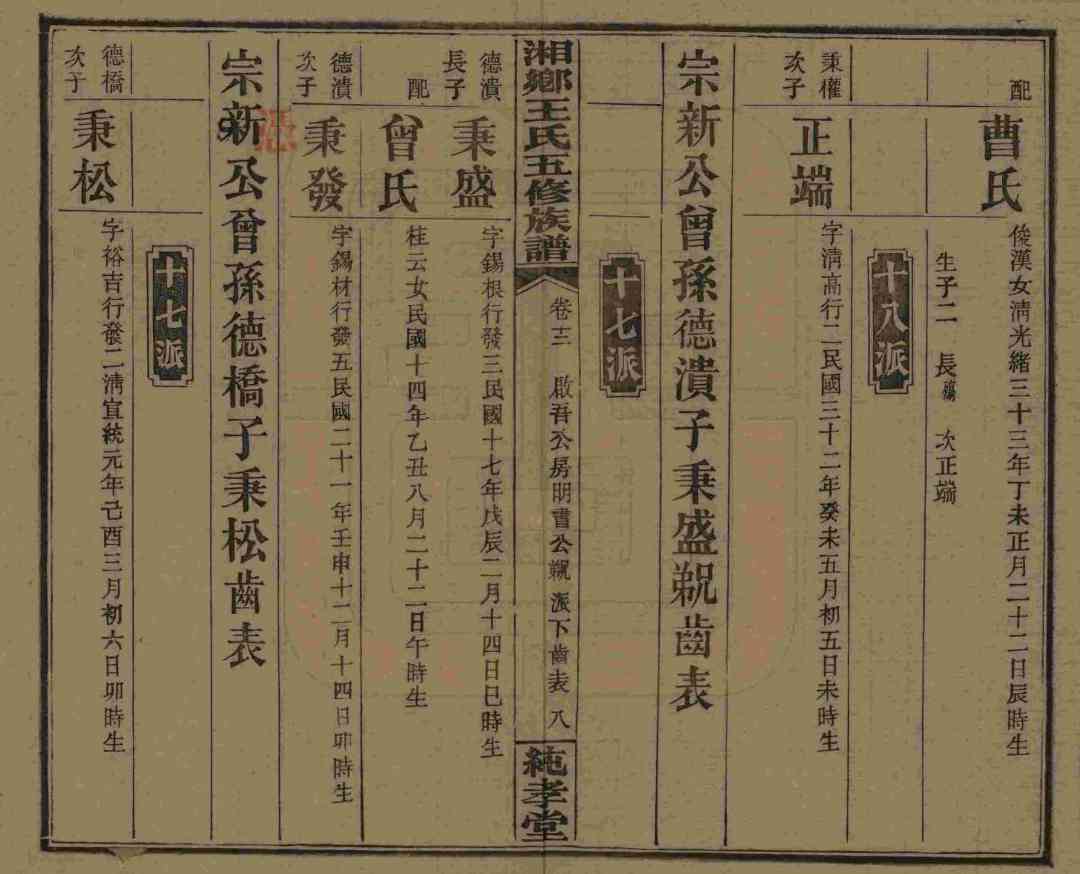 配
曹氏
俊漢女淸光緒三十三年丁未正月二十二日辰時生
生子二 長 次正端
十八派
秉權次子
正端
字淸高行二民國三十二年癸未五月初五日未時生
宗新公曾孫德潰子秉盛覜齒表
十七派
湘鄉王氏五修族譜
卷十三 啟吾公房明書公覜派下齒表 八
純孝堂
德潰長子
秉盛
字錫根行發三民國十七年戊辰二月十四日巳時生
配
曾氏
桂云女民國十四年乙丑八月二十二日午時生
德潰次子
秉發
字錫材行發五民國二十一年壬申十二月十四日卯時生
宗新公曾孫德橋子秉松齒表
十七派
德橋次子
秉松
字裕吉行發二淸宣統元年己酉三月初六日卯時生